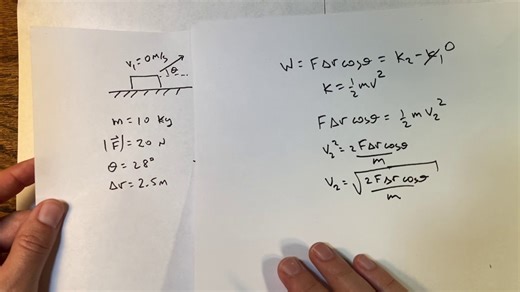 v₁ = 0 m/s
θ
m = 10 kg
|F⃗| = 20 N
θ = 28°
Δr = 2.5 m
W = FΔr cosθ = K₂ - K₁ 0
K = ½mv²
FΔr cosθ = ½ m v₂²
v₂² = 2FΔr cosθ / m
v₂ = √(2FΔr cosθ / m)